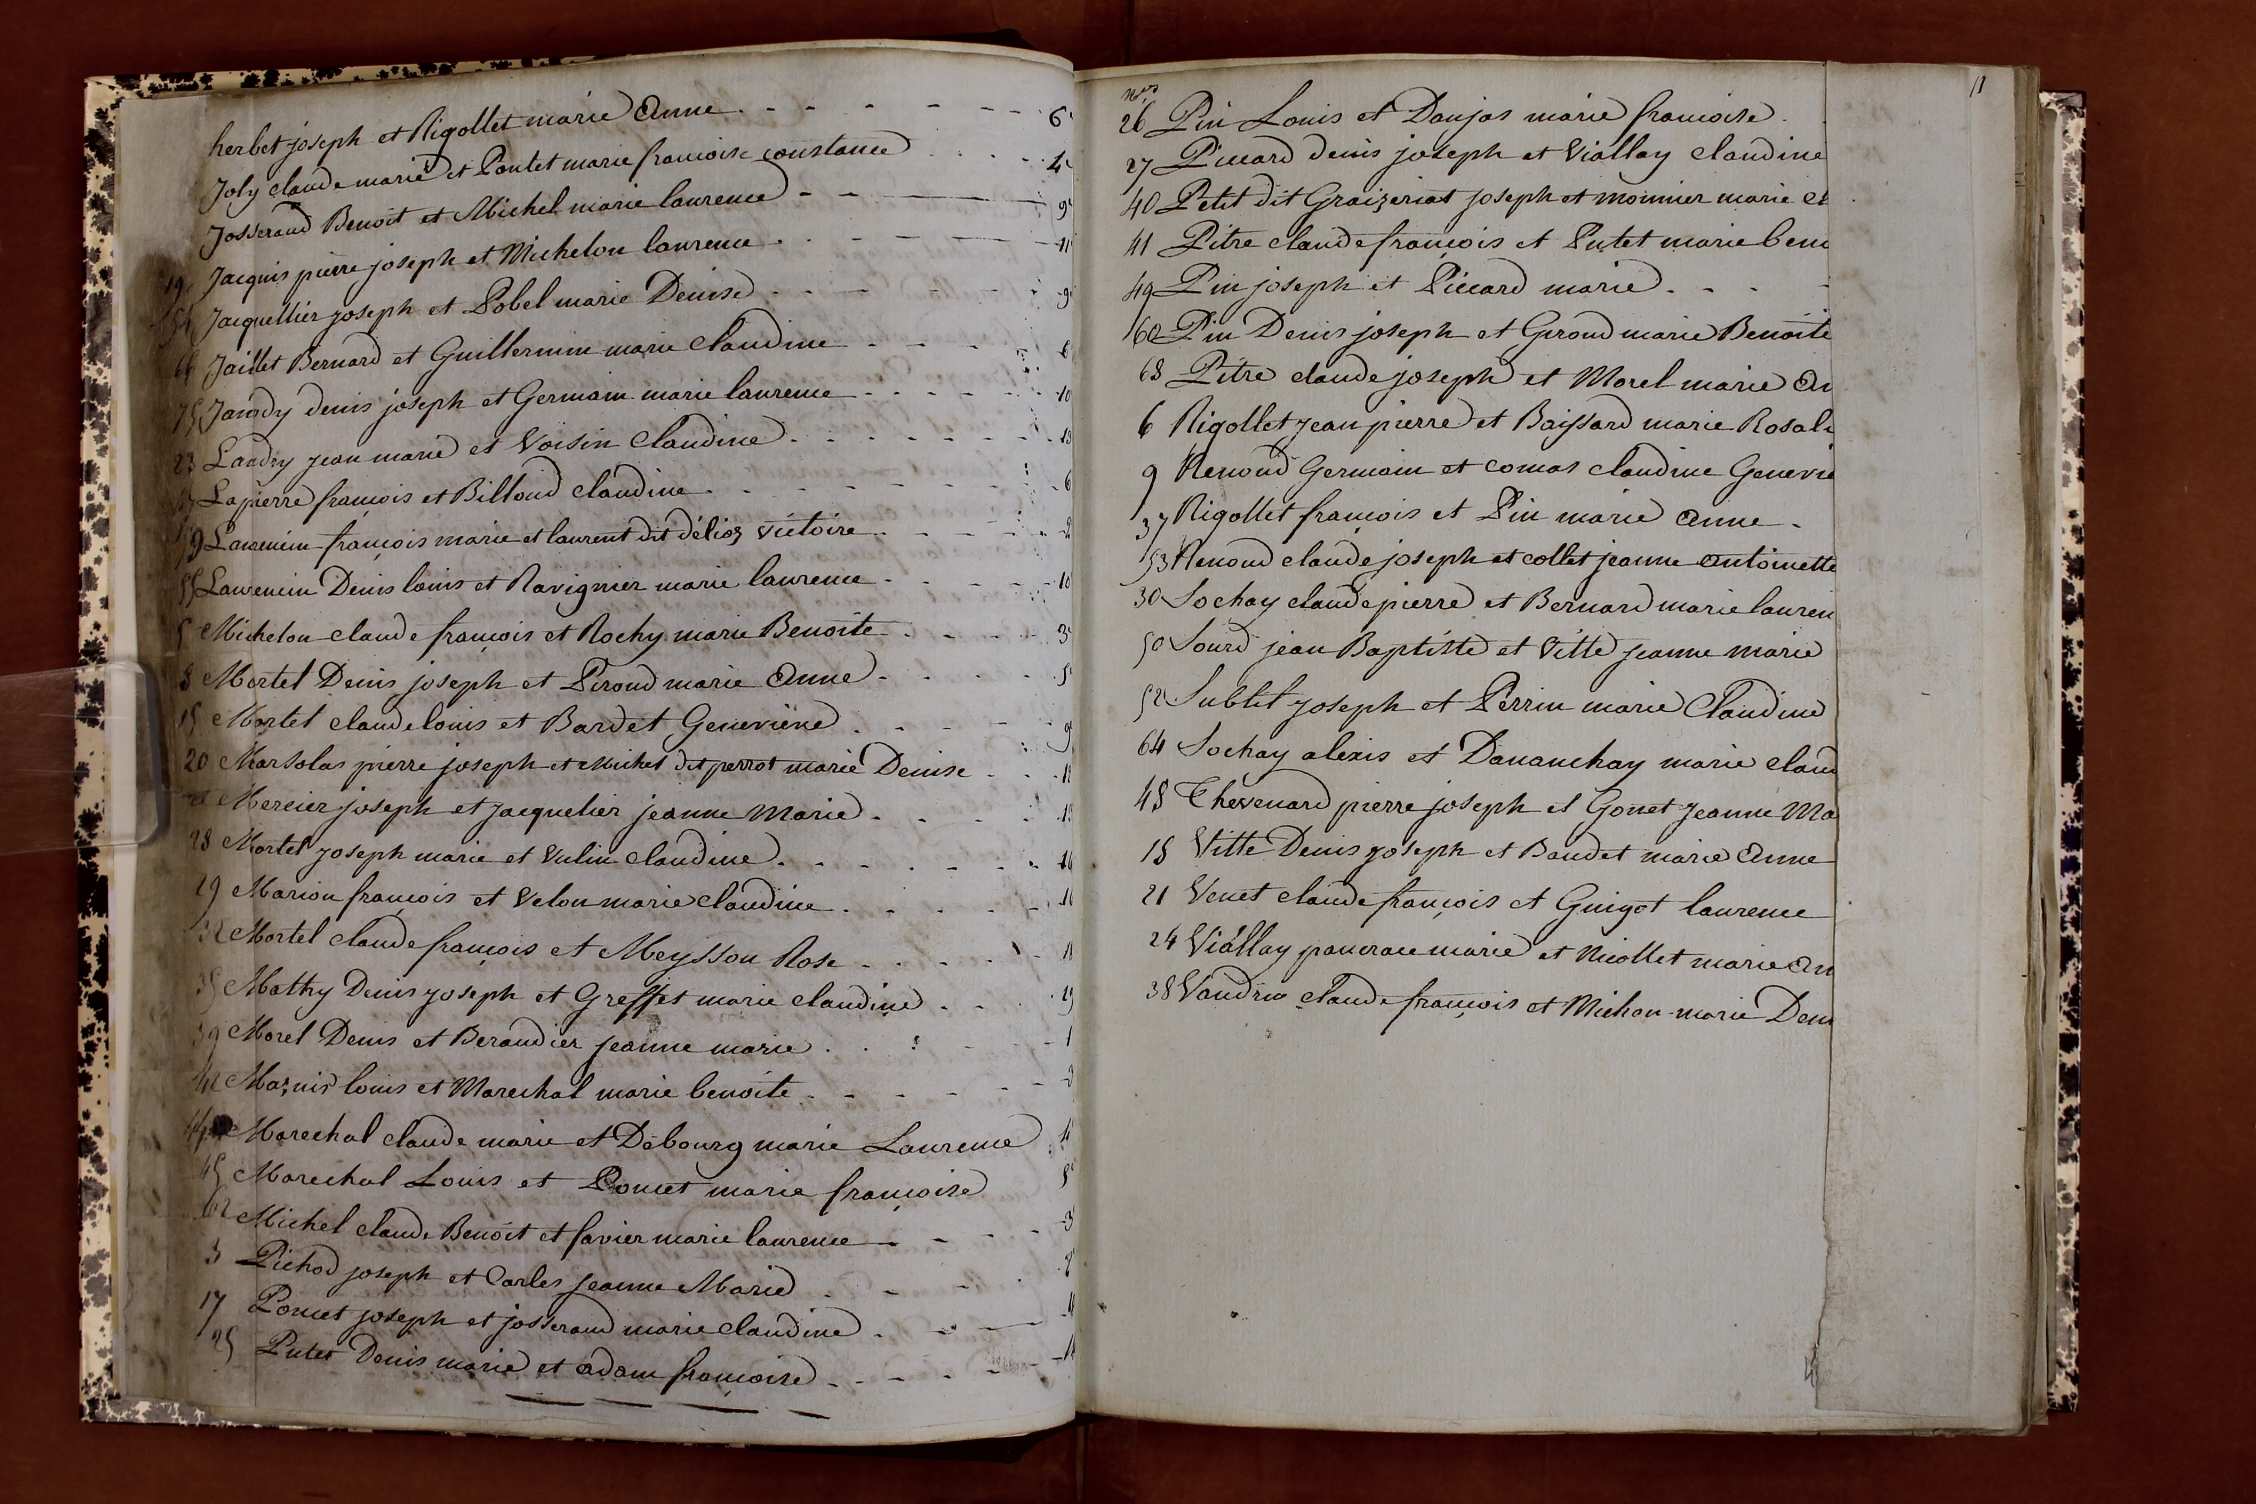 herbet joseph et Rigollet marie Anne - - - - - - 6
Joly claude marie et Pontet marie francoise constance
Josserand Benoit et Michel marie laurence - - 9
19 Jacquis pierre joseph et Michelon laurence - 11
54 Jacquellier joseph et Pobel marie Denise - 9
66 Jaillet Bernard et Guillermin marie Claudine - - - 6
75 Jandy denis joseph et Germain marie laurence - 10
23 Landry jean marie et Voisin Claudine - 13
Lapierre françois et Billoud claudine - 6
françois marie et laurent dit délior victoire
55 Denis louis et Ravignier marie laurence - 10
5 Michelon claude françois et Rochy marie Benoite - 3
8 Mortel Denis joseph et Piroud marie Anne - 5
15 Mortel claude louis et Bardet Geneviève - 9
20 Marsolas pierre joseph et Michel dit perrot marie Denise
Mercier joseph et Jacquelier jeanne Marie - 13
28 Mortel joseph marie et Vulin claudine - 16
29 Marion françois et Velon marie claudine - 16
32 Mortel claude françois et Meysson Rose
35 Mathy Denis joseph et Greffet marie claudine
39 Morel Denis et Beraudier jeanne marie
42 louis et Marechal marie benoite
44 Marechal claude marie et Debourg marie Laurence
45 Marechal Louis et Poncet marie françoise
62 Michel claude Benoit et favier marie laurence - 3
3 Pichod joseph et Carles jeanne Marie
17 Poncet joseph et josserand marie claudine
25 Putet Denis marie et adam françoise
11
Nos
26 Pin Louis et Danjas marie francoise
27 Piccard denis joseph et Viallay claudine
40 Petit dit Graizeriat joseph et monnier marie cl
41 Pitre claude françois et Putet marie beno
49 Pin joseph et Piccard marie - - -
60 Pin Denis joseph et Giroud marie Benoite
68 Pitre claude joseph et Morel marie An
6 Rigollet jean pierre et Baissard marie Rosali
9 Renoud Germain et comas claudine Genevie
37 Rigollet françois et Pin marie Anne -
53 Renoud claude joseph et collet jeanne antoinette
30 Sochay claude pierre et Bernard marie lauren
50 Sourd jean Baptiste et Vitte jeanne marie
52 Sublet joseph et Perrin marie Claudine
64 Sochay alexis et Dananchay marie claud
48 Thevenard pierre joseph et Gonet jeanne Ma
18 Vitte Denis joseph et Baudet marie Anne
21 Venet claude françois et Guigot laurence
24 Viallay pancrace marie et Nicollet marie An
38 claude françois et Michon marie Deni